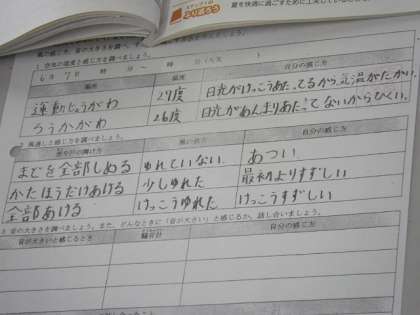 ふり返ろう
夏を快適に過ごすために工夫している
を調べましょう。
6月7日 時 分～ 時 分(天気 )
場所 温度 自分の感じ方
運動じょうがわ 27度 日光がけっこうあたってるから、気温がたかい。
ろうかがわ 26度 日光があんまりあたってないからひくい。
2 風通しと感じ方を調べましょう。
窓や戸の開け方 自分の感じ方
まどを全部しめる ゆれていない あつい
かたほうだけあける 少しゆれた 最初よりすずしい
全部あける けっこうゆれた けっこうすずしい
3 音の大きさを調べましょう。また、どんなときに「音が大きい」と感じるか、話し合いましょう。
音が大きいと感じるとき 騒音計 自分の感じ方